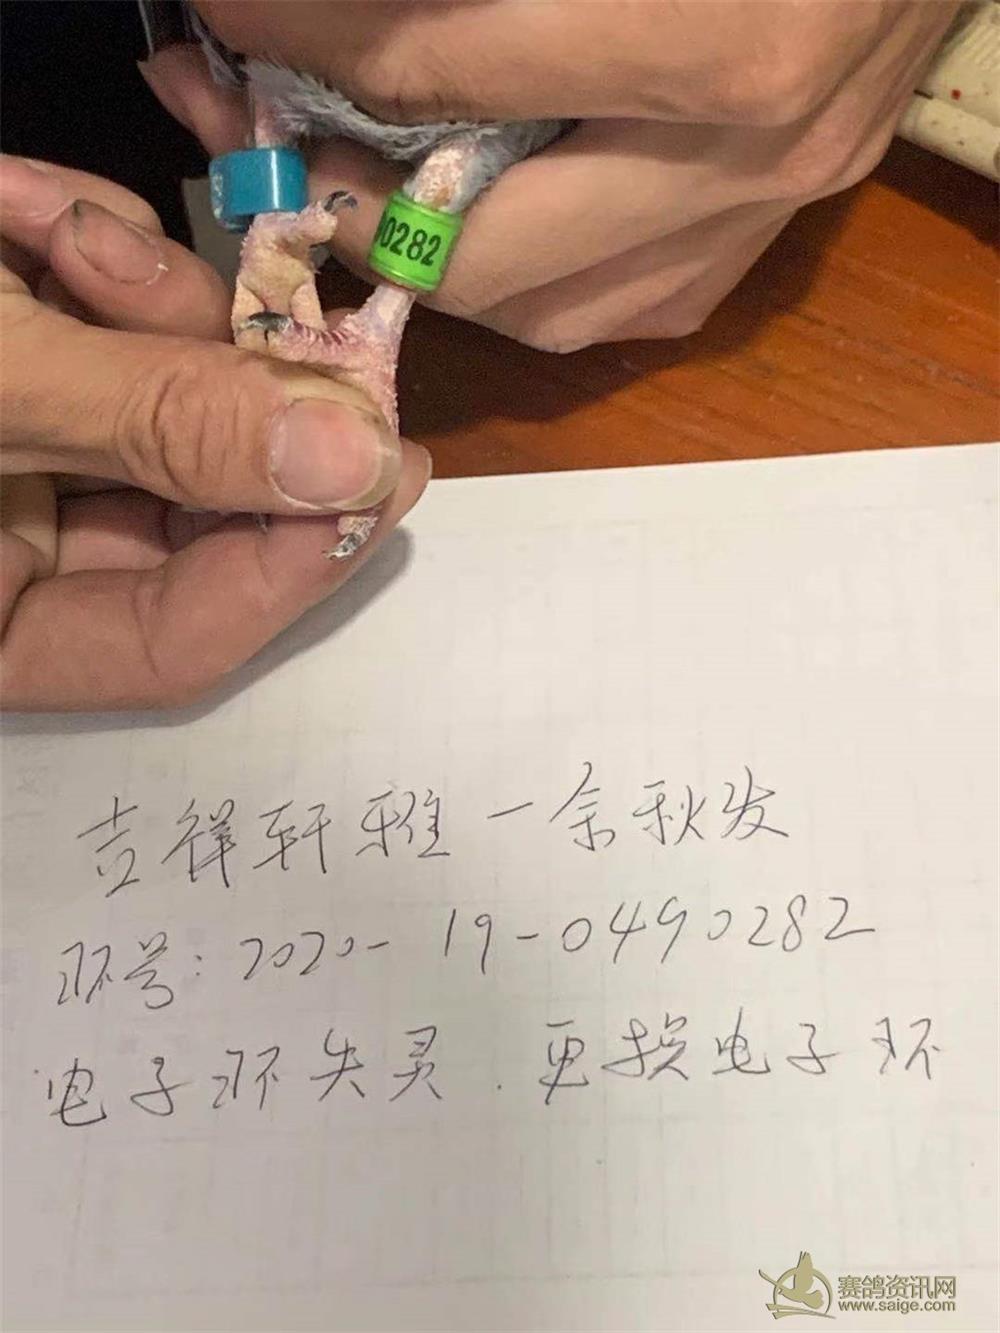 0282
吉祥轩雅－余秋发
环号：2020-19-0490282
电子环失灵．更换电子环
赛鸽资讯网
www.saige.com